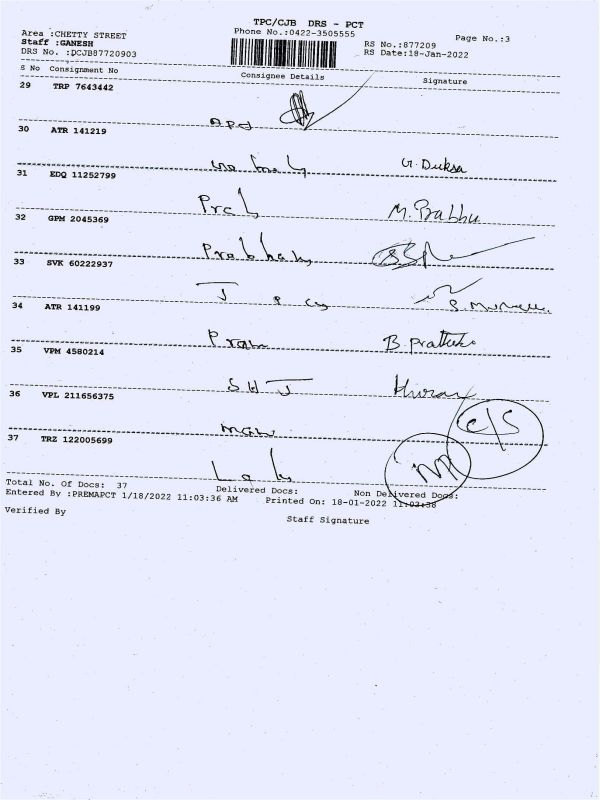 TPC/CJB DRS - PCT
Area :CHETTY STREET Phone No.:0422-3505555 Page No.:3
Staff :GANESH RS No.:877209
DRS No. :PCJB87720903 RS Date:18-Jan-2022
S No Consignment No Consignee Details Signature
29 TRP 7643442
30 ATR 141219
G. Duksa
31 EDQ 11252799
M. Prabhu
32 GPM 2045369
Prabhak
33 SVK 60222937
34 ATR 141199
B. Prattek
35 VPM 4580214
SHJ
36 VPL 211656375
C/S
37 TRZ 122005699
Total No. Of Docs: 37 Delivered Docs: Non Delivered Docs:
Entered By :PREMAPCT 1/18/2022 11:03:36 AM Printed On: 18-01-2022 11:03:38
Verified By Staff Signature